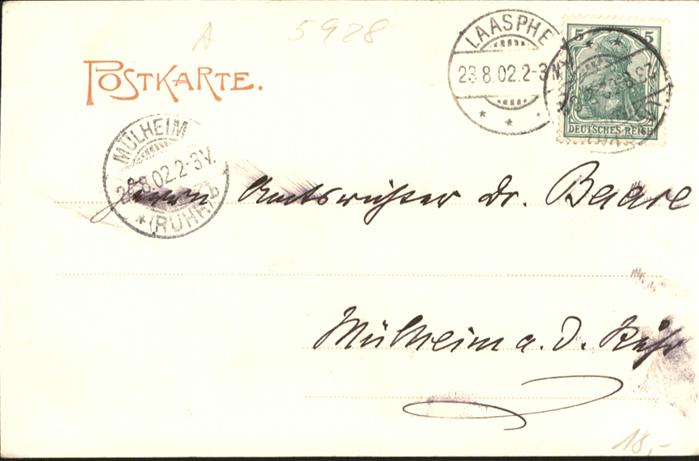 A 5928
POSTKARTE.
LAASPHE
23.8.02.2-3N.
5 5
DEUTSCHES REICH
MÜLHEIM
8.02.2-3V.
*(RUHR)
Herrn Amtsrichter Dr. Baare
Mülheim a. d. Ruhr
18,-